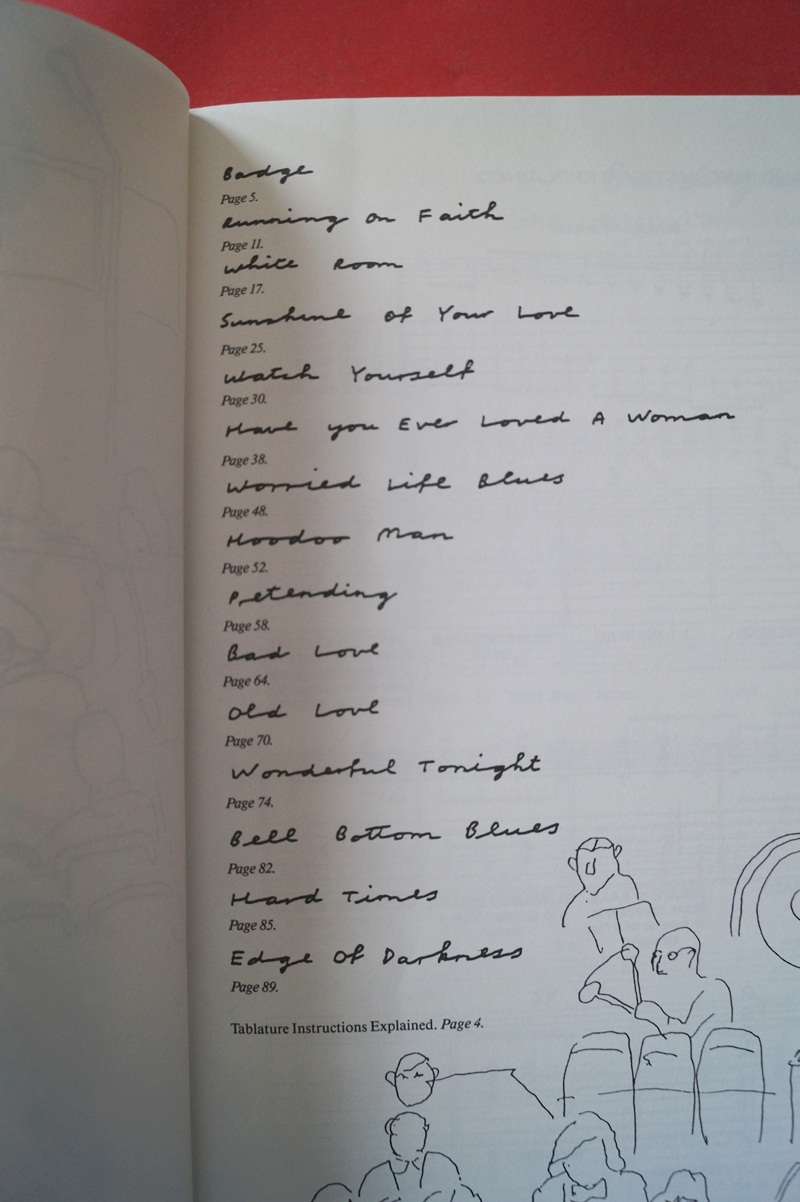 Badge
Page 5.
Running on Faith
Page 11.
White Room
Page 17.
Sunshine of Your Love
Page 25.
Watch Yourself
Page 30.
Have you Ever Loved A Woman
Page 38.
Worried Life Blues
Page 48.
Hoodoo Man
Page 52.
Pretending
Page 58.
Bad Love
Page 64.
Old Love
Page 70.
Wonderful Tonight
Page 74.
Bell Bottom Blues
Page 82.
Hard Times
Page 85.
Edge Of Darkness
Page 89.
Tablature Instructions Explained. Page 4.